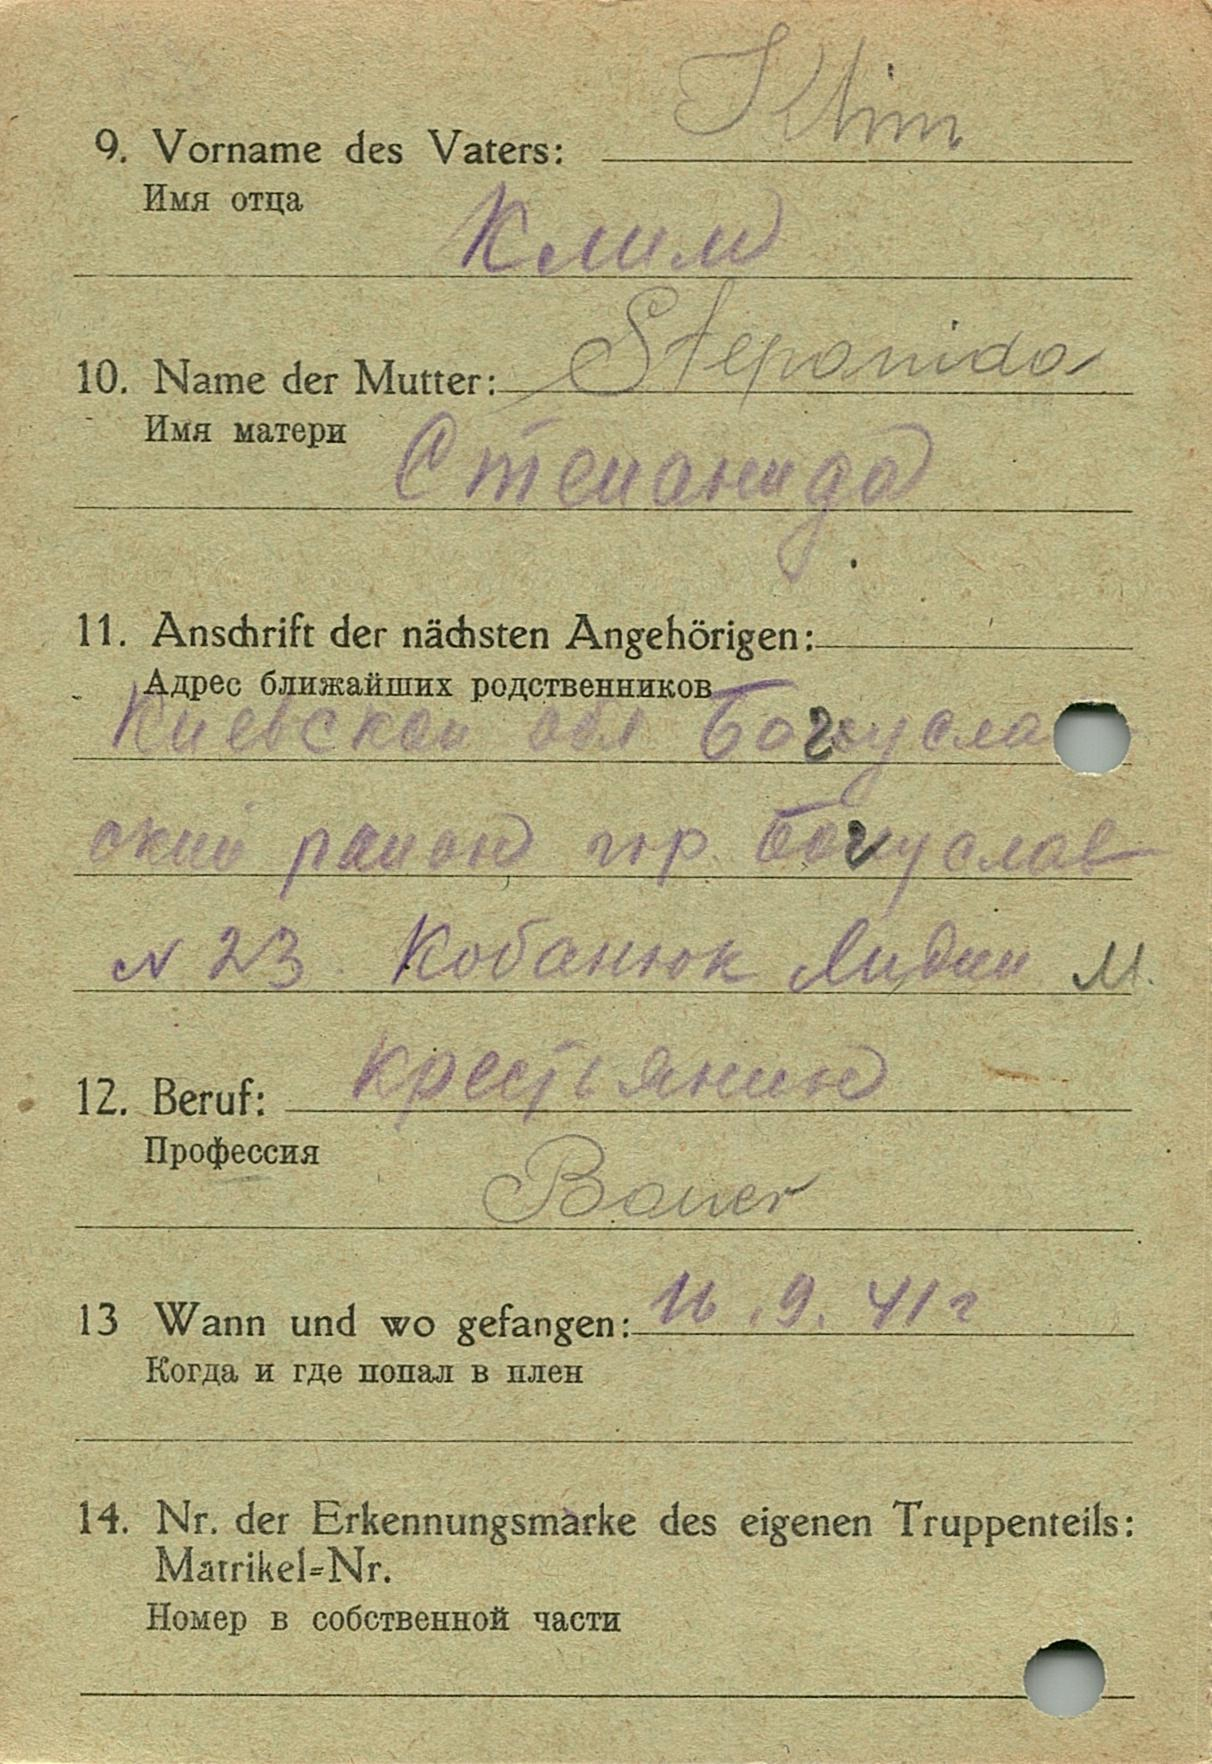 Klim
9. Vorname des Vaters:
Имя отца
Клим
Stepanida
10. Name der Mutter:
Имя матери
Степанида
11. Anschrift der nächsten Angehörigen:
Адрес ближайших родственников
Киевской обл Богусла
ский район гор Богуслав
N 23 Кобанюк Лидии М.
крестьянин
12. Beruf:
Профессия
Bauer
13 Wann und wo gefangen: 16.9.41г
Когда и где попал в плен
14. Nr. der Erkennungsmarke des eigenen Truppenteils:
Matrikel=Nr.
Номер в собственной части